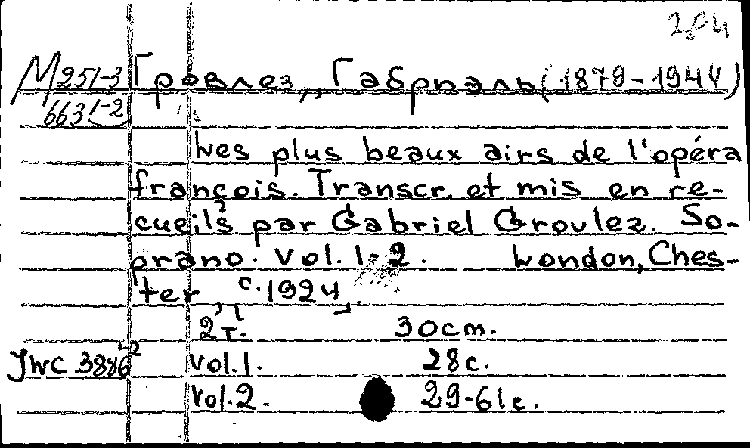 204
М251-3 Гровлез, Габриэль (1879-1944)
663[-2
Les plus beaux airs de l'opéra
françois. Transcr. et mis en re-
cueils par Gabriel Grovlez. So-
prano. Vol. 1-2. London, Ches-
ter, c. 1924.
2 т. 30 cm.
JWC 3886-2 Vol. 1. 28 c.
Vol. 2. 29-61 c.